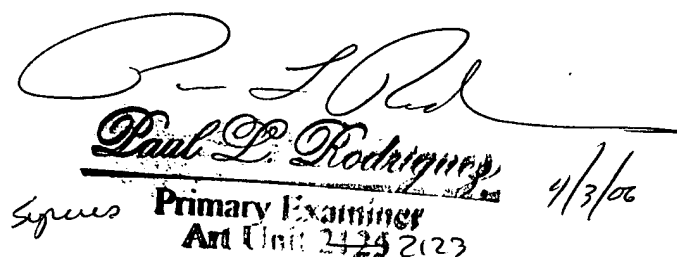 Paul L. Rodriguez
4/3/06
Primary Examiner
Art Unit 2125 2123